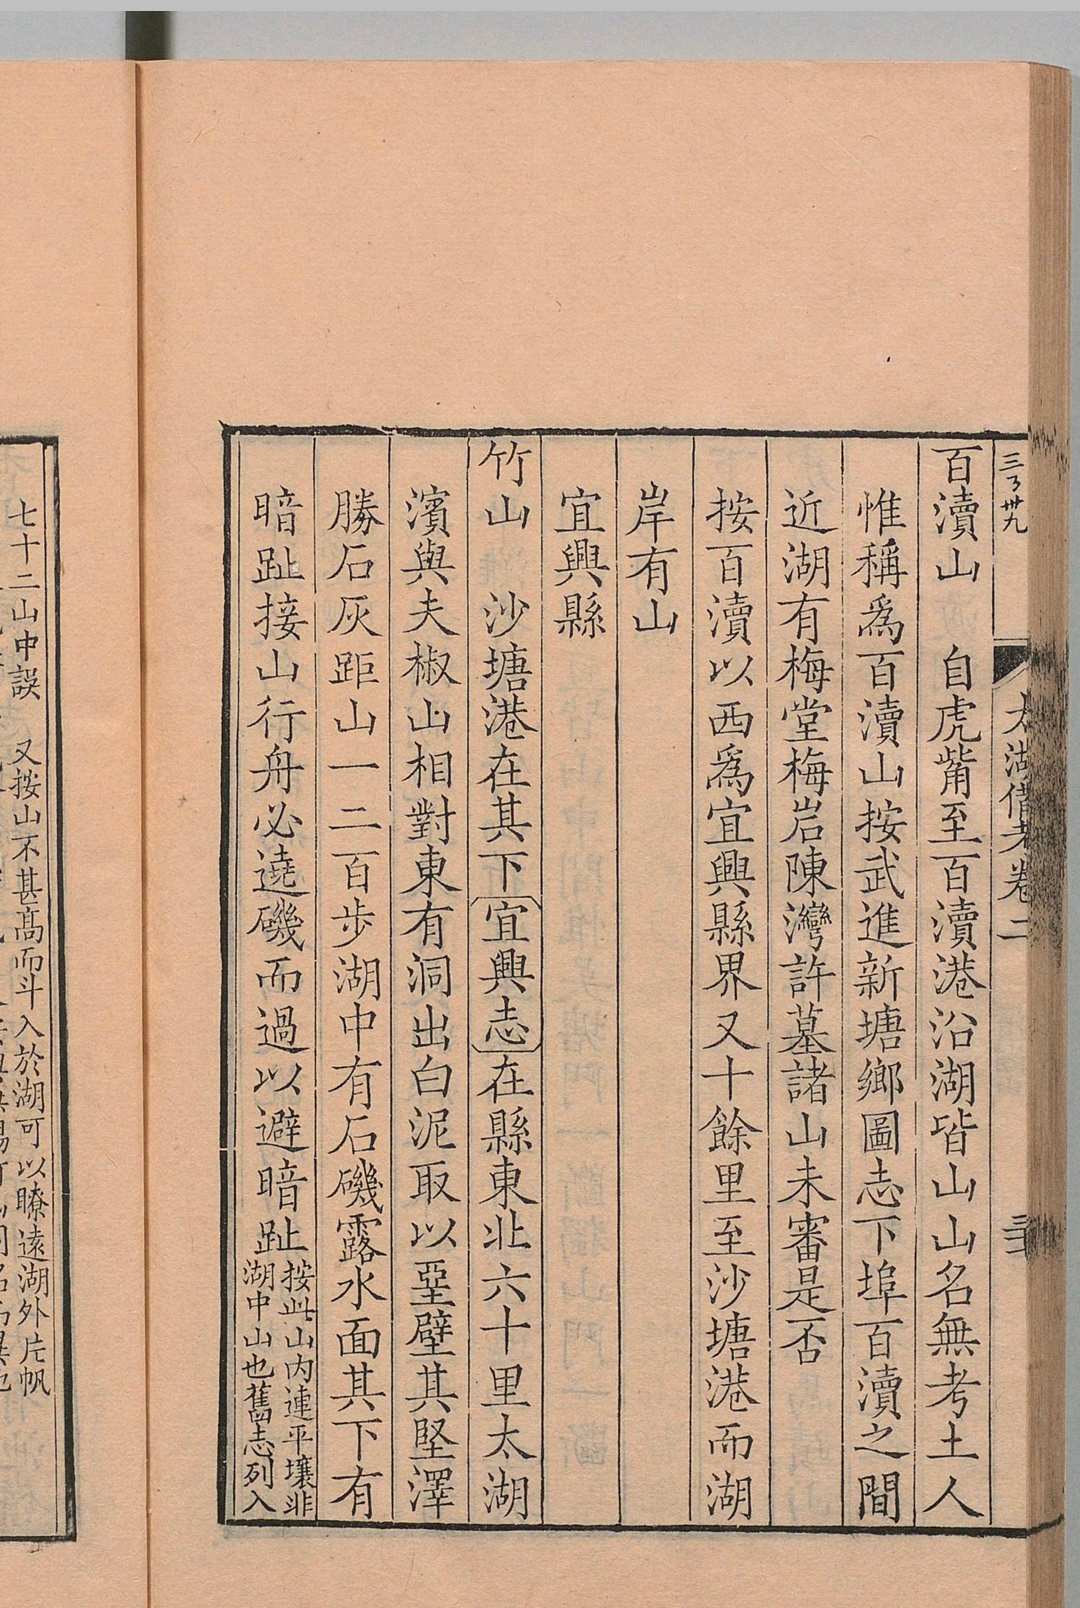 太湖備考卷二
百瀆山　自虎觜至百瀆港沿湖皆山山名無考土人
惟稱爲百瀆山按武進新塘鄉圖志下埠百瀆之間
近湖有梅堂梅岩陳灣許墓諸山未審是否
按百瀆以西爲宜興縣界又十餘里至沙塘港而湖
岸有山
宜興縣
竹山　沙塘港在其下宜興志在縣東北六十里太湖
濱與夫椒山相對東有洞出白泥取以堊壁其堅澤
勝石灰距山一二百步湖中有石磯露水面其下有
暗趾接山行舟必遶磯而過以避暗趾按此山內連平壤非
湖中山也舊志列入
七十二山中誤　又按山不甚高而斗入於湖可以瞭遠湖外片帆